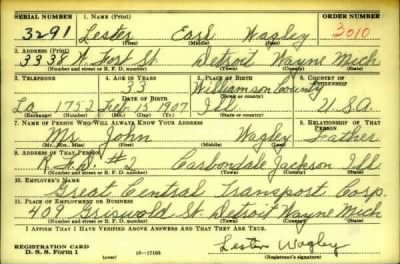 SERIAL NUMBER 1. NAME (Print) ORDER NUMBER
3291 Lester Earl Wagley 3010
(First) (Middle) (Last)
2. ADDRESS (Print)
3338 W. Fort St. Detroit Wayne Mich
(Number and street or R. F. D. number) (Town) (County) (State)
3. TELEPHONE 4. AGE IN YEARS 5. PLACE OF BIRTH 6. COUNTRY OF CITIZENSHIP
33 Williamson County
DATE OF BIRTH (Town or county)
La 1752 Feb. 15 1907 Ill U.S.A.
(Exchange) (Number) (Mo.) (Day) (Yr.) (State or country)
7. NAME OF PERSON WHO WILL ALWAYS KNOW YOUR ADDRESS 8. RELATIONSHIP OF THAT PERSON
Mr. John Wagley Father
(Mr., Mrs., Miss) (First) (Middle) (Last)
9. ADDRESS OF THAT PERSON
R.F.D. #2 Carbondale Jackson Ill
(Number and street or R. F. D. number) (Town) (County) (State)
10. EMPLOYER'S NAME
Great Central Transport Corp.
11. PLACE OF EMPLOYMENT OR BUSINESS
409 Griswold St. Detroit Wayne Mich
(Number and street or R. F. D. number) (Town) (County) (State)
I AFFIRM THAT I HAVE VERIFIED ABOVE ANSWERS AND THAT THEY ARE TRUE.
REGISTRATION CARD
D. S. S. Form 1 (over) 16-17105 Lester Wagley
(Registrant's signature)